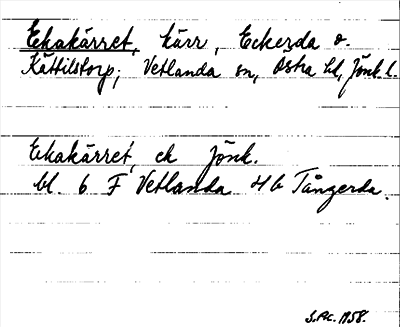 Ekakärret, kärr, Eckerda o.
Kättilstorp, Vetlanda sn, Östra hd, Jönk. l.
Ekakärret, ek Jönk.
bl. 6 F Vetlanda 4 b Tångerda.
1958.